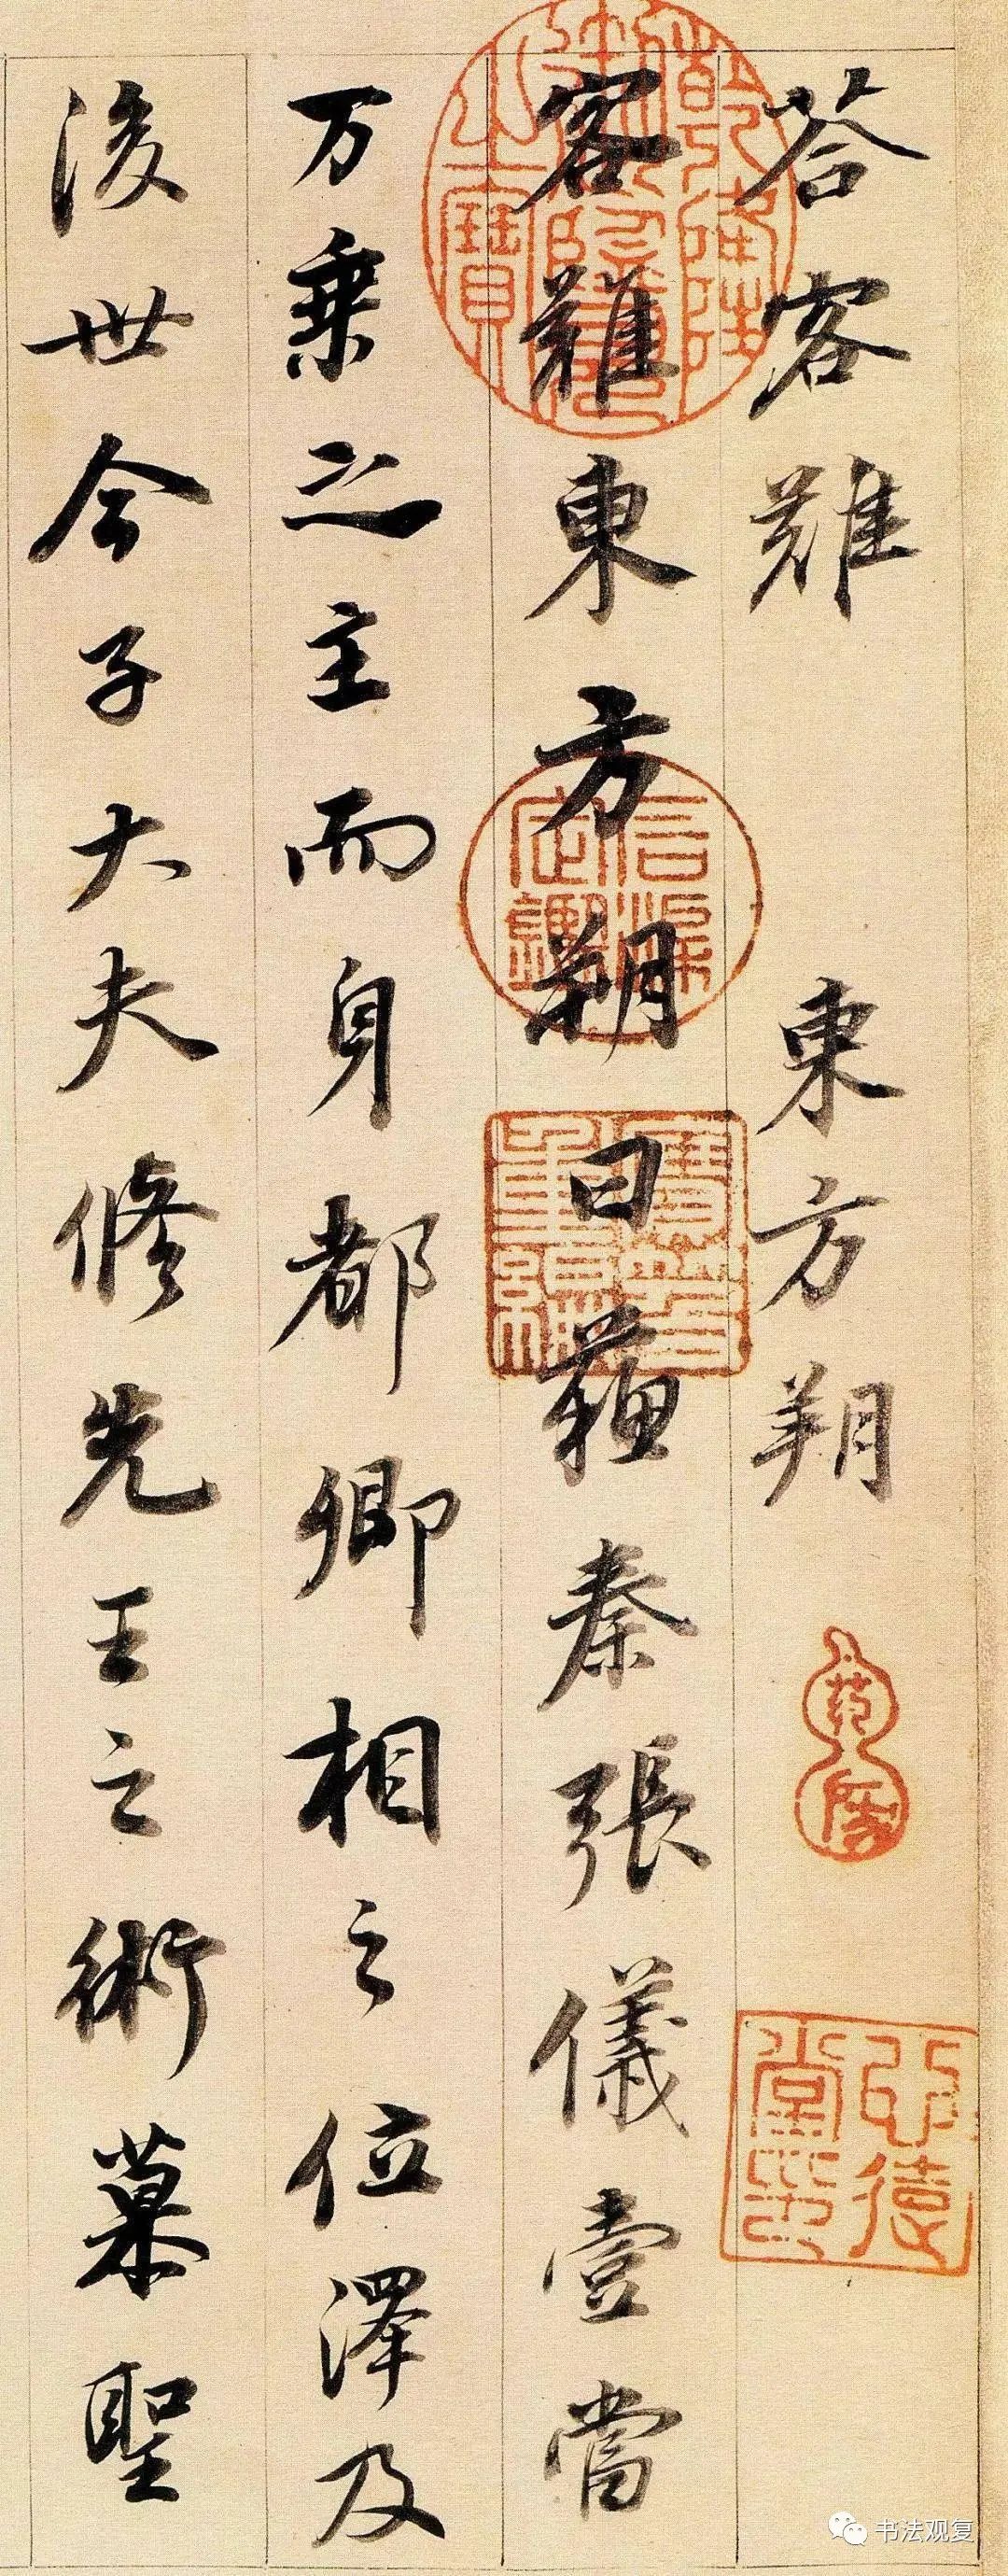 荅客難 東方朔
客難東方朔曰蘓秦張儀壹當
万乗之主而身都卿相之位澤及
後世今子大夫修先王之術慕聖
乾隆御覽之寶
書法观复